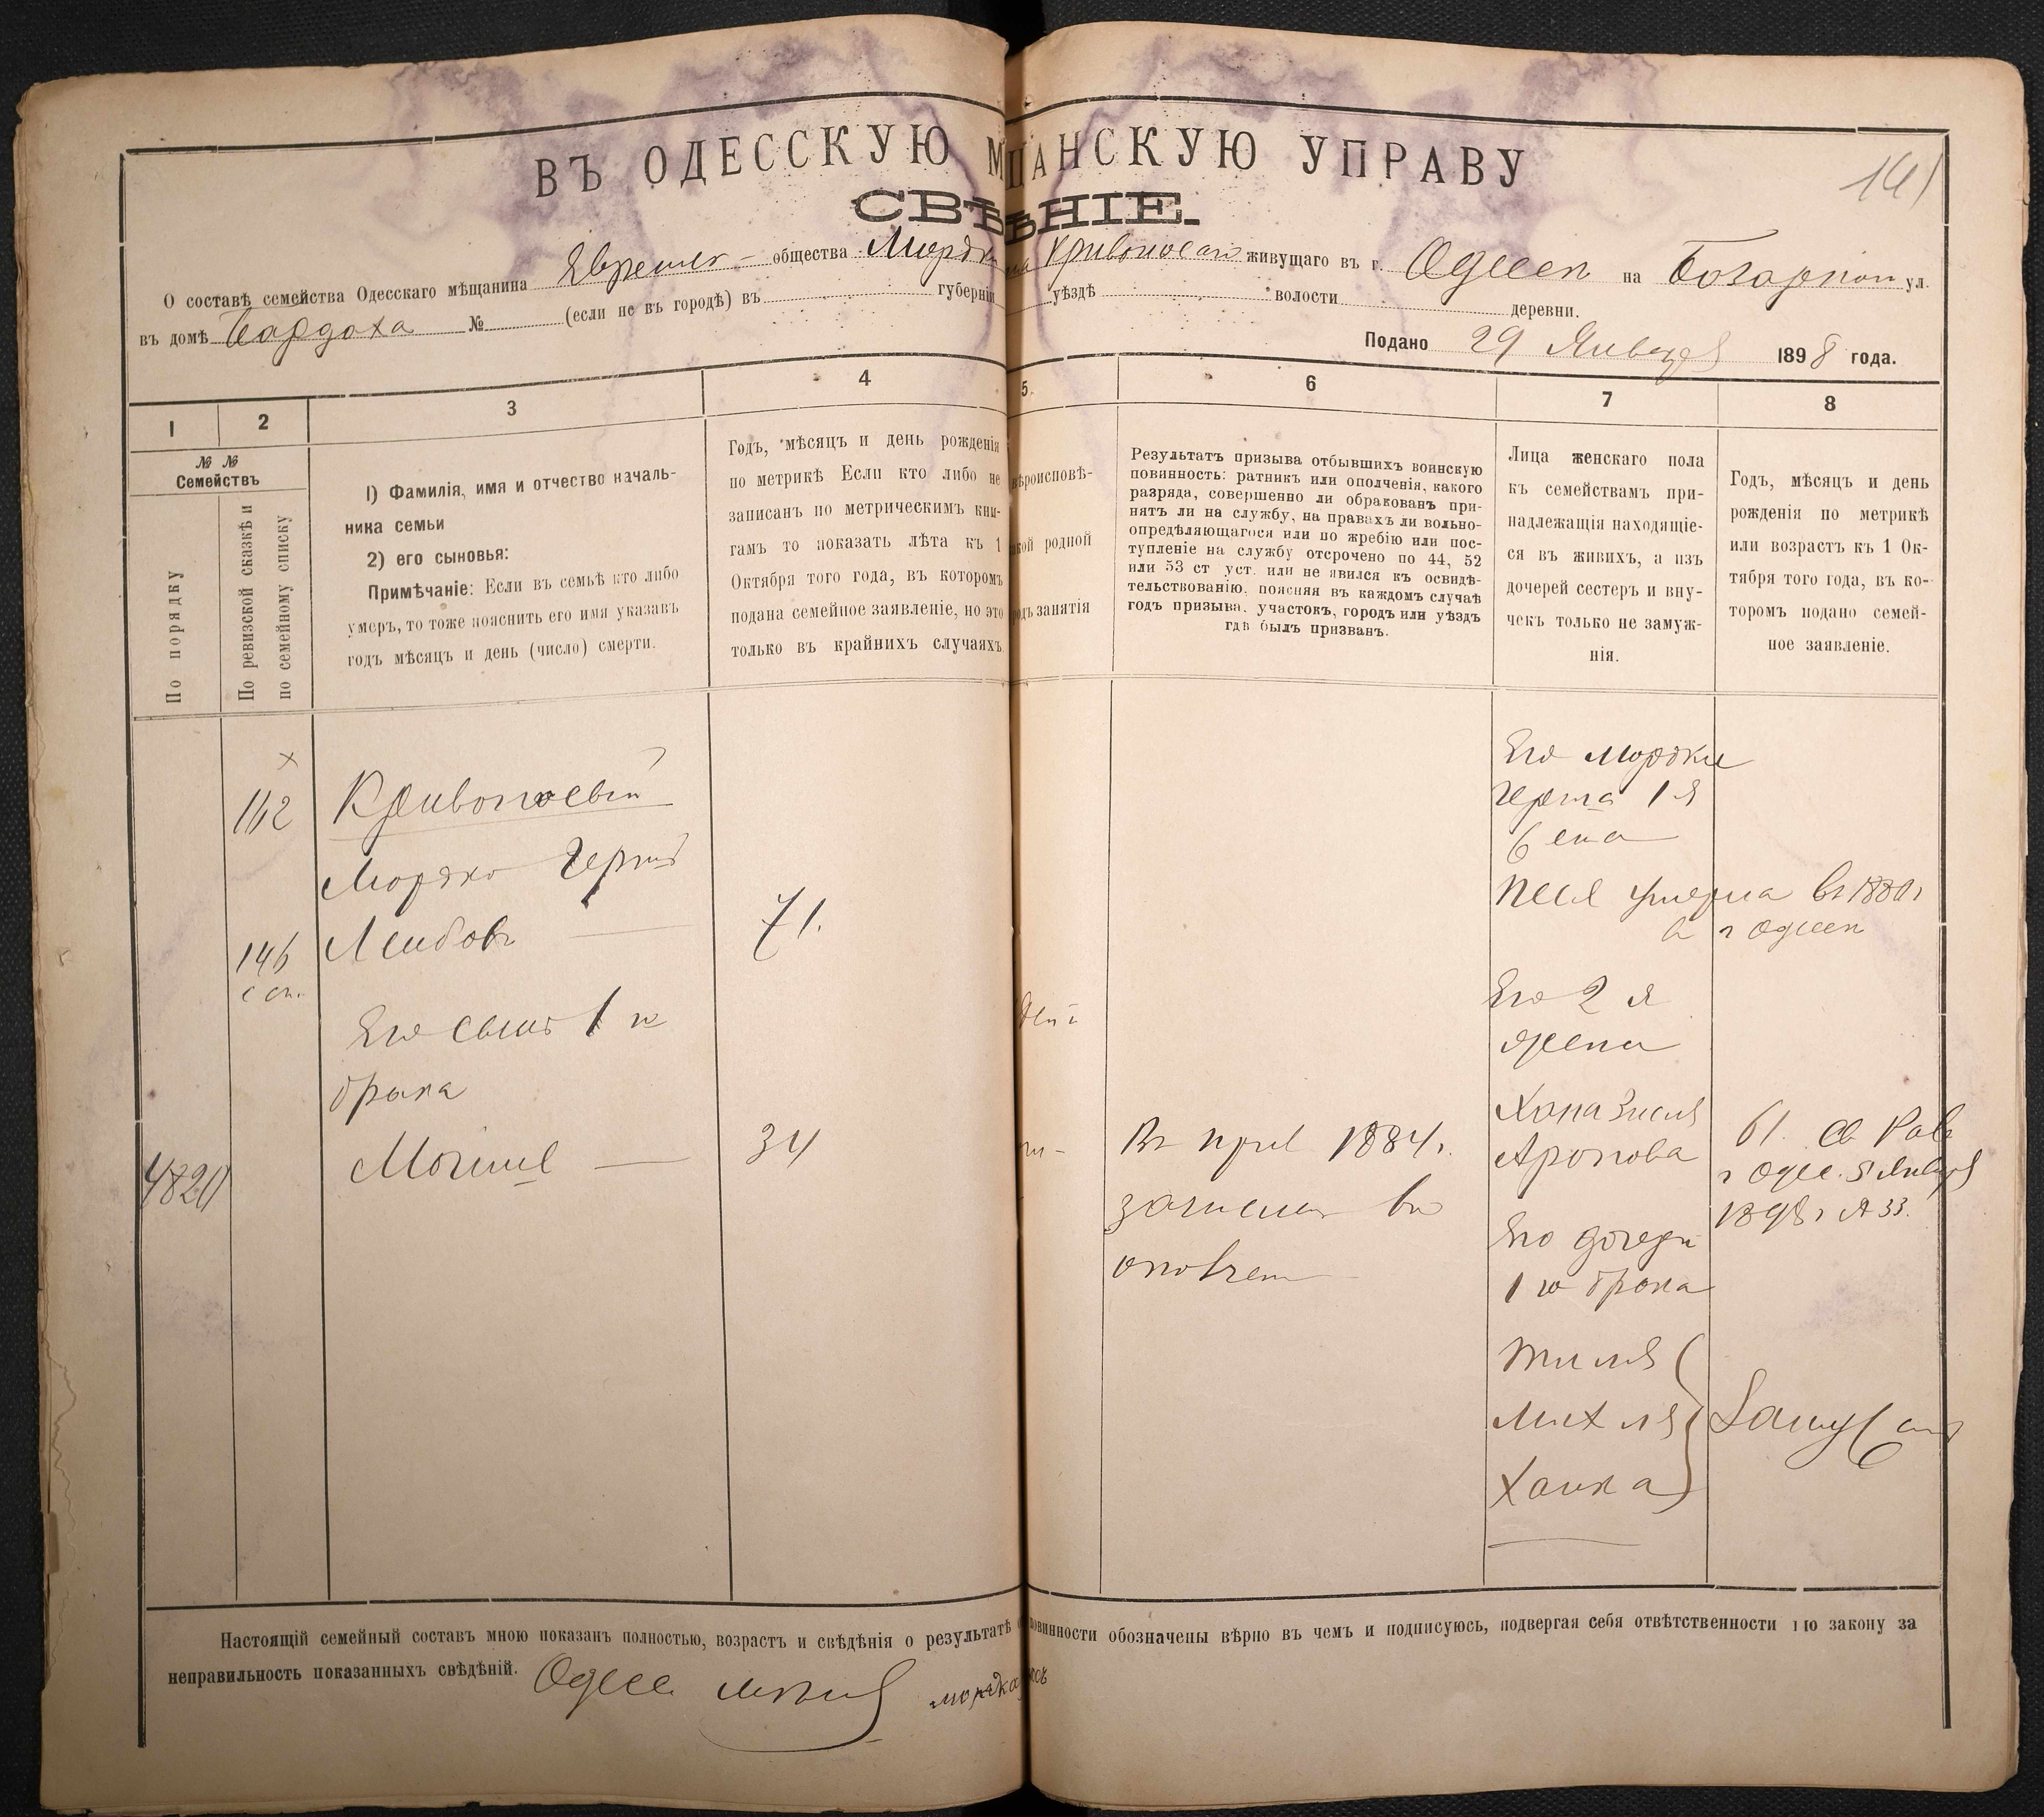 141
ВЪ ОДЕССКУЮ М ЩАНСКУЮ УПРАВУ
СВѢ ѢНІЕ.
О составѣ семейства Одесскаго мѣщанина Евреин общества Мордк Кривоносаго живущаго въ г. Одессѣ на Базарной ул.
въ домѣ Бардаха № (если не въ городѣ) въ губерніи уѣздѣ волости деревни.
Подано 29 Января 1898 года.
1 2 3 4 5. 6 7 8
№ №
Семействъ
По порядку
По ревизской сказкѣ и
по семейному списку
1) Фамилія, имя и отчество началь-
ника семьи
2) его сыновья:
Примѣчаніе: Если въ семьѣ кто либо
умеръ, то тоже пояснить его имя указавъ
годъ мѣсяцъ и день (число) смерти.
Годъ, мѣсяцъ и день рожденія
по метрикѣ Если кто либо не
записанъ по метрическимъ кни-
гамъ то показать лѣта къ 1
Октября того года, въ которомъ
подана семейное заявленіе, но это
только въ крайнихъ случаяхъ.
вѣроисповѣ-
кой родной
родъ занятія
Результатъ призыва отбывшихъ воинскую
повинность: ратникъ или ополченія, какого
разряда, совершенно ли обракованъ при-
нятъ ли на службу, на правахъ ли вольно-
опредѣляющагося или по жребію или пос-
тупленіе на службу отсрочено по 44, 52
или 53 ст уст. или не явился къ освидѣ-
тельствованію, поясняя въ каждомъ случаѣ
годъ призыва, участокъ, городъ или уѣздъ
гдѣ былъ призванъ.
Лица женскаго пола
къ семействамъ при-
надлежащія находящіе-
ся въ живихъ, а изъ
дочерей сестеръ и вну-
чекъ только не замуж-
нія.
Годъ, мѣсяцъ и день
рожденія по метрикѣ
или возрастъ къ 1 Ок-
тября того года, въ ко-
торомъ подано семей-
ное заявленіе.
112
Кривоносый
Мордко Герш
Лейбовъ
71.
146
с сп.
Его сынъ 1 го
брака
4820
Мошко
34
Въ приз 1884 г.
зачислен во
ополчен
Его Мордки
Герша 1 я
жена
Песя умерла въ 1880 г
в г Одессе
Его 2 я
жена
Хана Зисля
Аронова
61. св Рав
г Одес. 5 Января
1898 г № 33.
Его дочери
1 го брака
Тиля
Михля
Ханка
Замужем
Настоящій семейный составъ мною показанъ полностью, возрастъ и свѣдѣнія о результатѣ повинности обозначены вѣрно въ чемъ и подписуюсь, подвергая себя отвѣтственности по закону за
неправильность показанныхъ свѣдѣній. Одесс мѣщ мордка